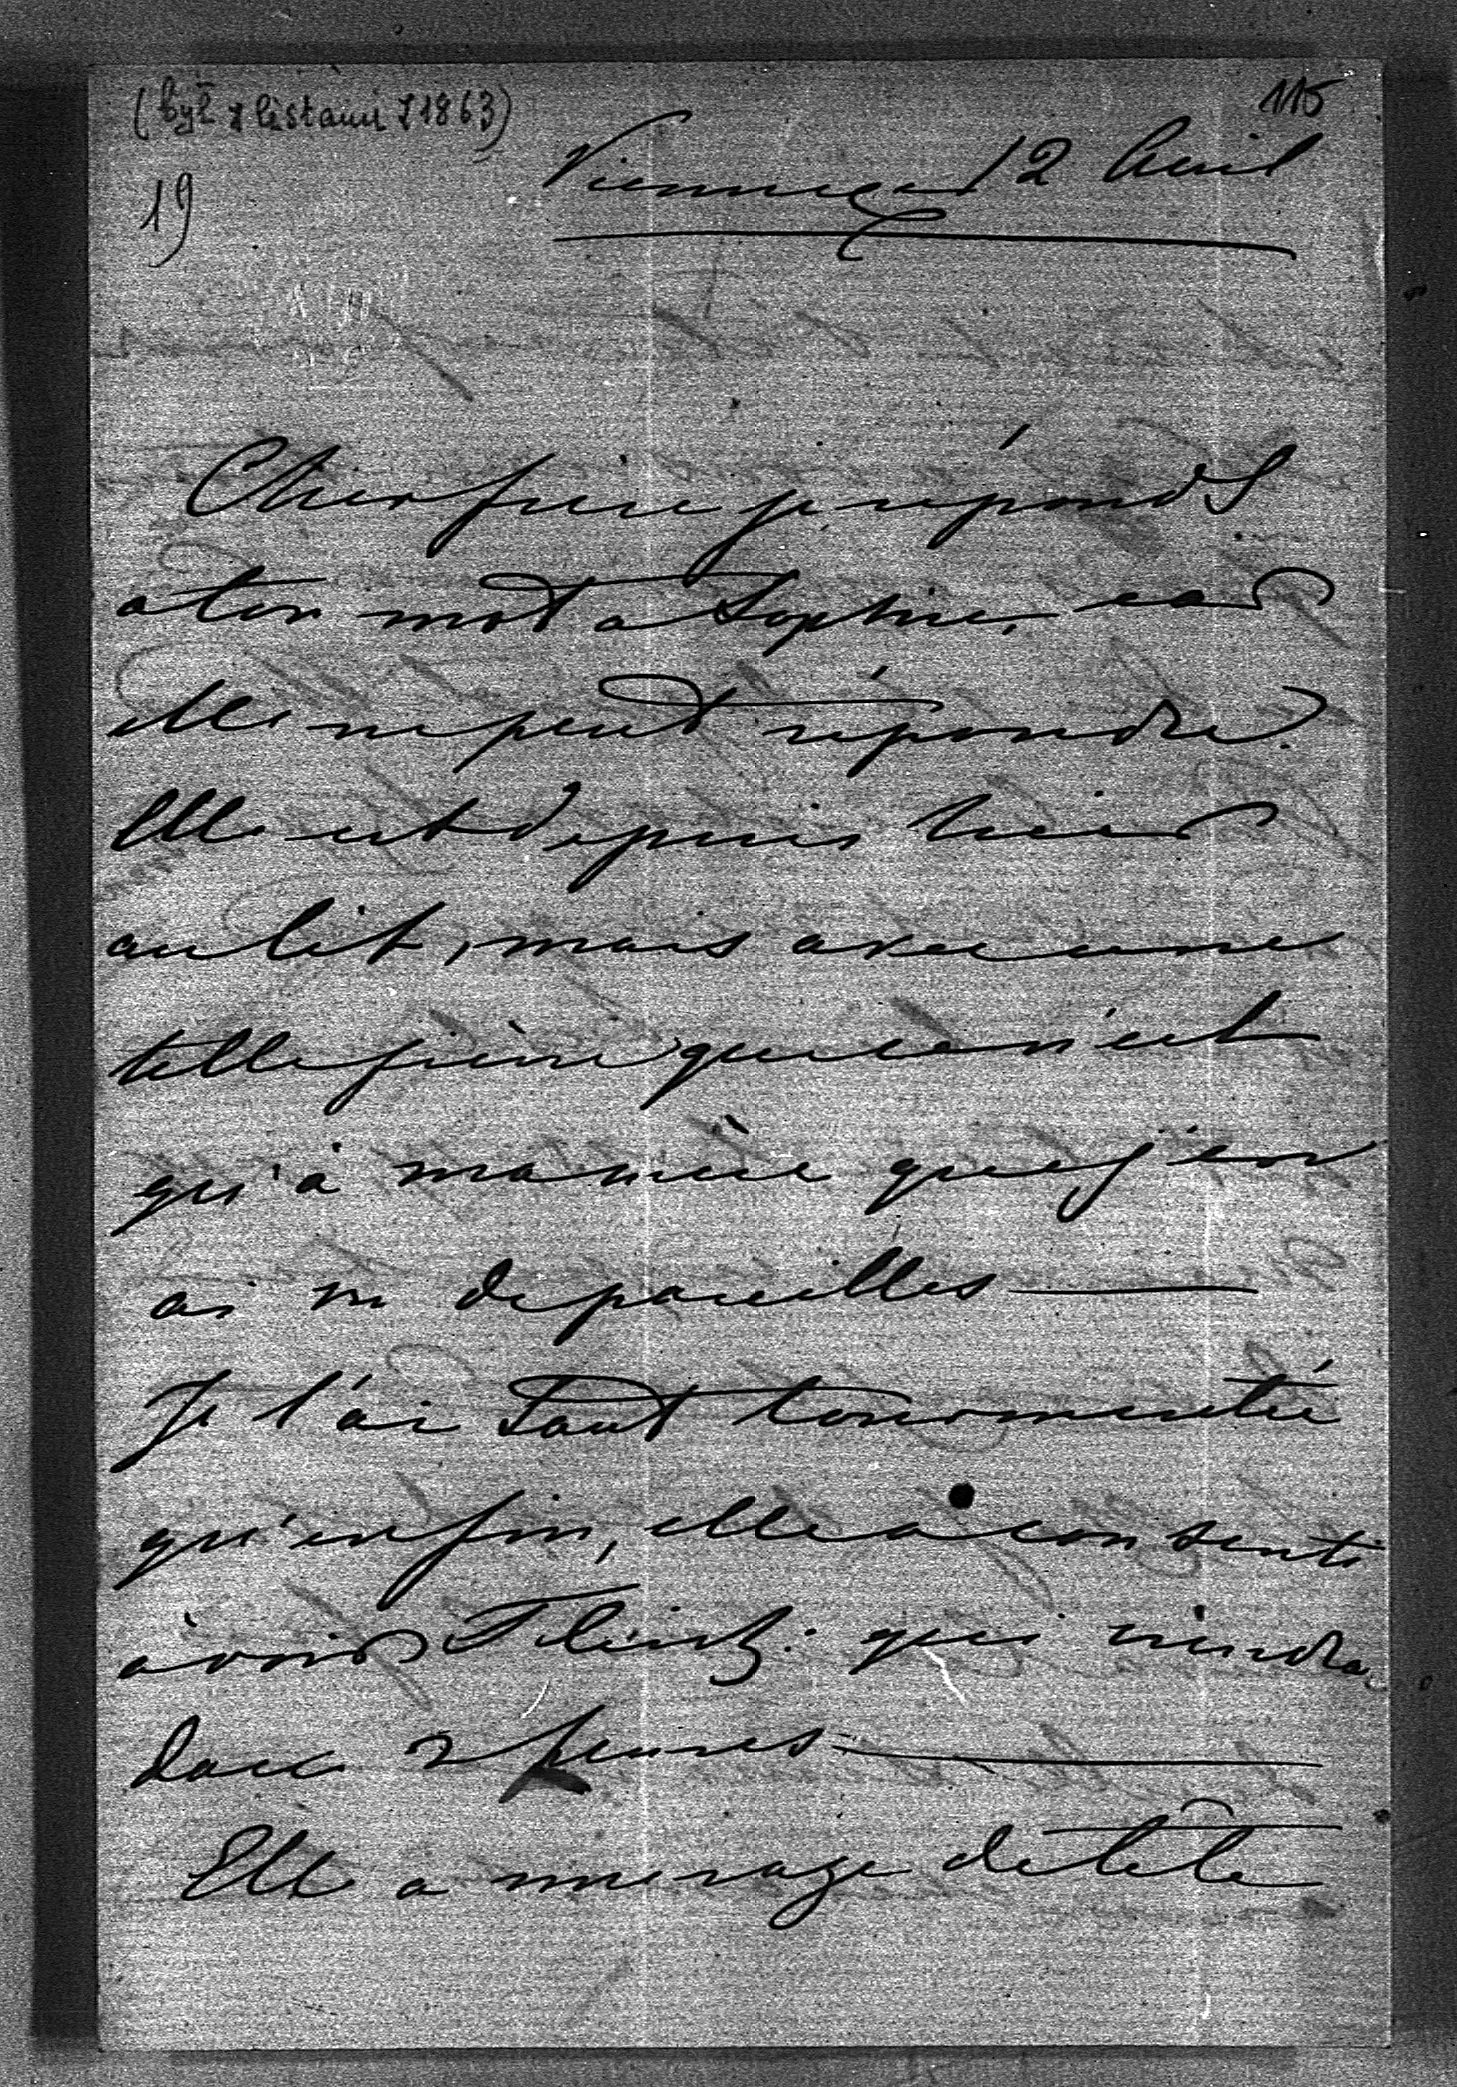 (był z listami z 1863)
115
19
Vienne 12 Avril
Cher frere je réponds
a ton mot a Sophie, car
elle ne peut répondre.
Elle est depuis hier
au lit, mais avec une
telle fièvre que ce n'est
qu'à ma mère que j'en
ai vu de pareilles —
Je l'ai tant tourmentée
qu'enfin, elle a consenti
à voir qui viendra
dans 2 heures —
Elle a une rage de tête